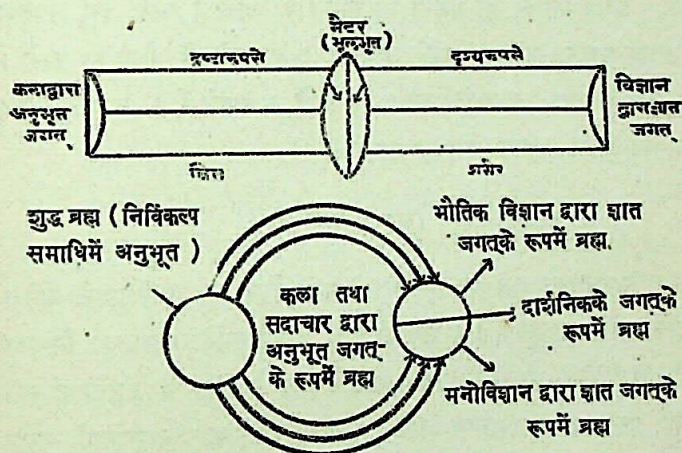 मैटर
(मूलभूत)
द्रष्टारूपसे
दृश्यरूपसे
कलाद्वारा
अनुभूत
जगत्
विज्ञान
द्वारा ज्ञात
जगत्
चित्त
शरीर
शुद्ध ब्रह्म (निर्विकल्प
समाधिमें अनुभूत )
भौतिक विज्ञान द्वारा ज्ञात
जगत्के रूपमें ब्रह्म
कला तथा
सदाचार द्वारा
अनुभूत जगत्-
के रूपमें ब्रह्म
दार्शनिकके जगत्के
रूपमें ब्रह्म
मनोविज्ञान द्वारा ज्ञात जगत्के
रूपमें ब्रह्म